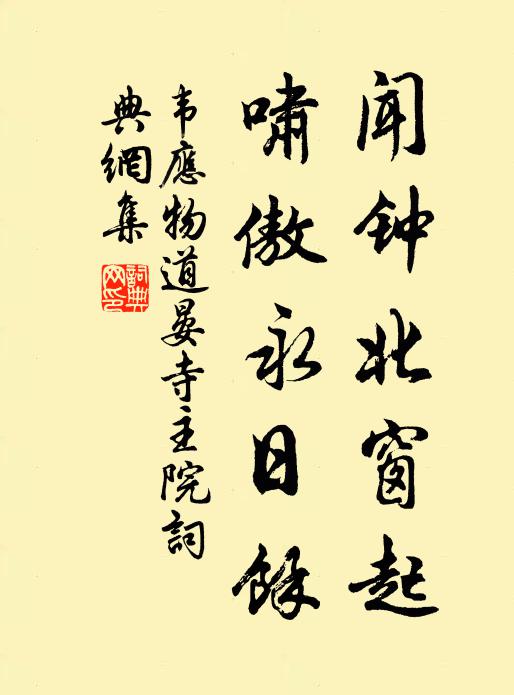 闻钟北窗起
啸傲永日餘
韦應物道晏寺主院詞
典網集
詞典網印